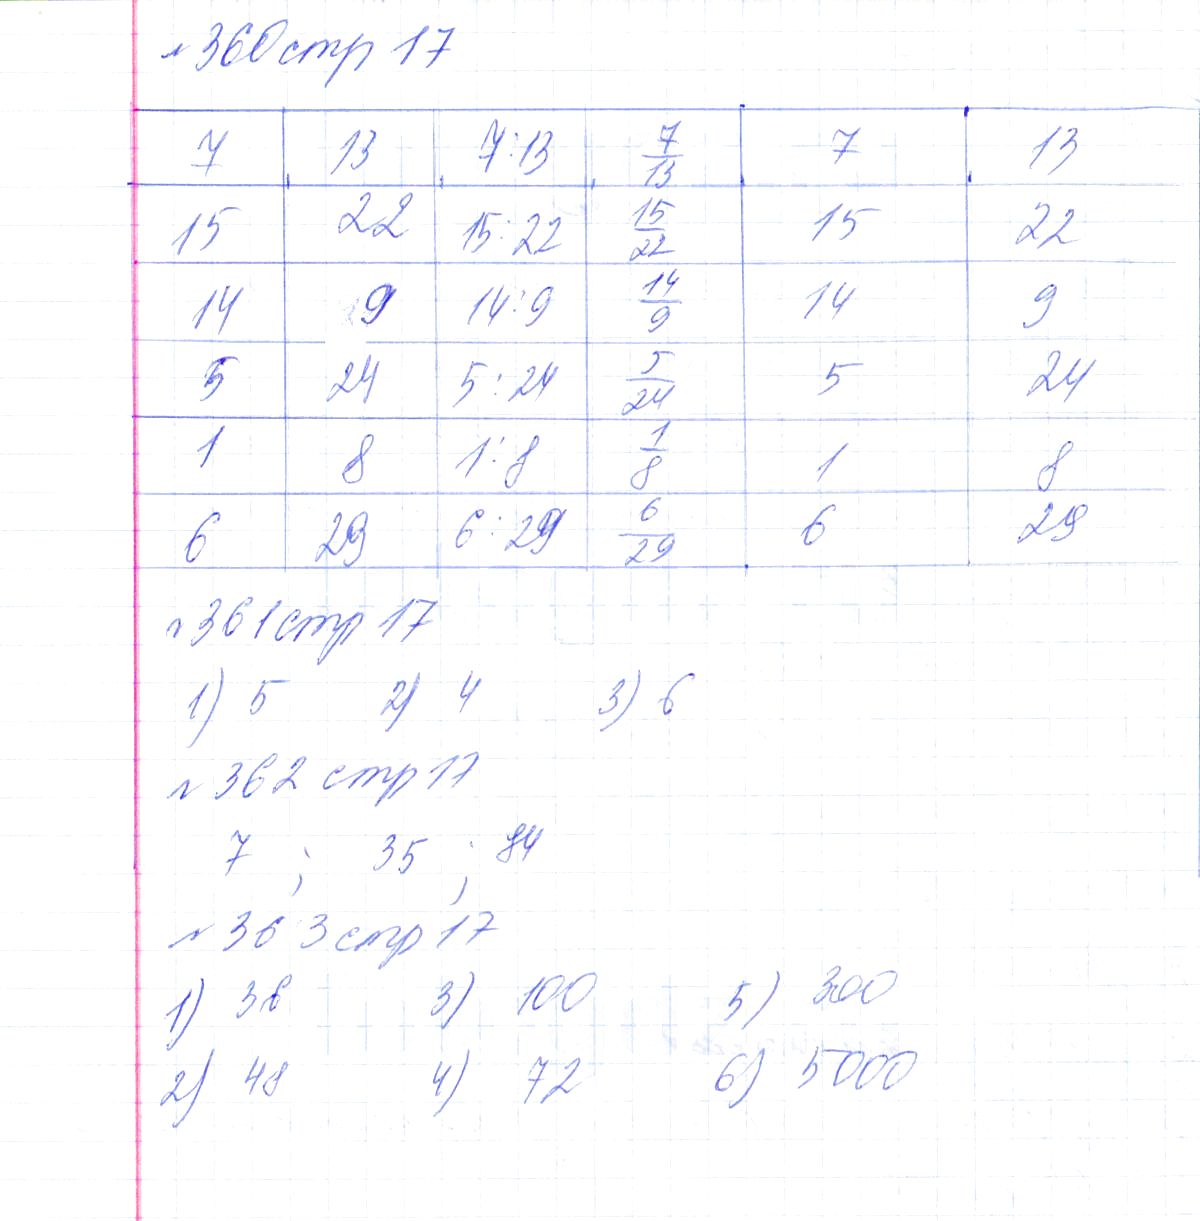 №360 стр 17
7 13 7:13 7/13 7 13
15 22 15:22 15/22 15 22
14 9 14:9 14/9 14 9
5 24 5:24 5/24 5 24
1 8 1:8 1/8 1 8
6 29 6:29 6/29 6 29
№361 стр 17
1) 5 2) 4 3) 6
№362 стр 17
7 ; 35 ; 84
№363 стр 17
1) 36 3) 100 5) 300
2) 48 4) 72 6) 5000